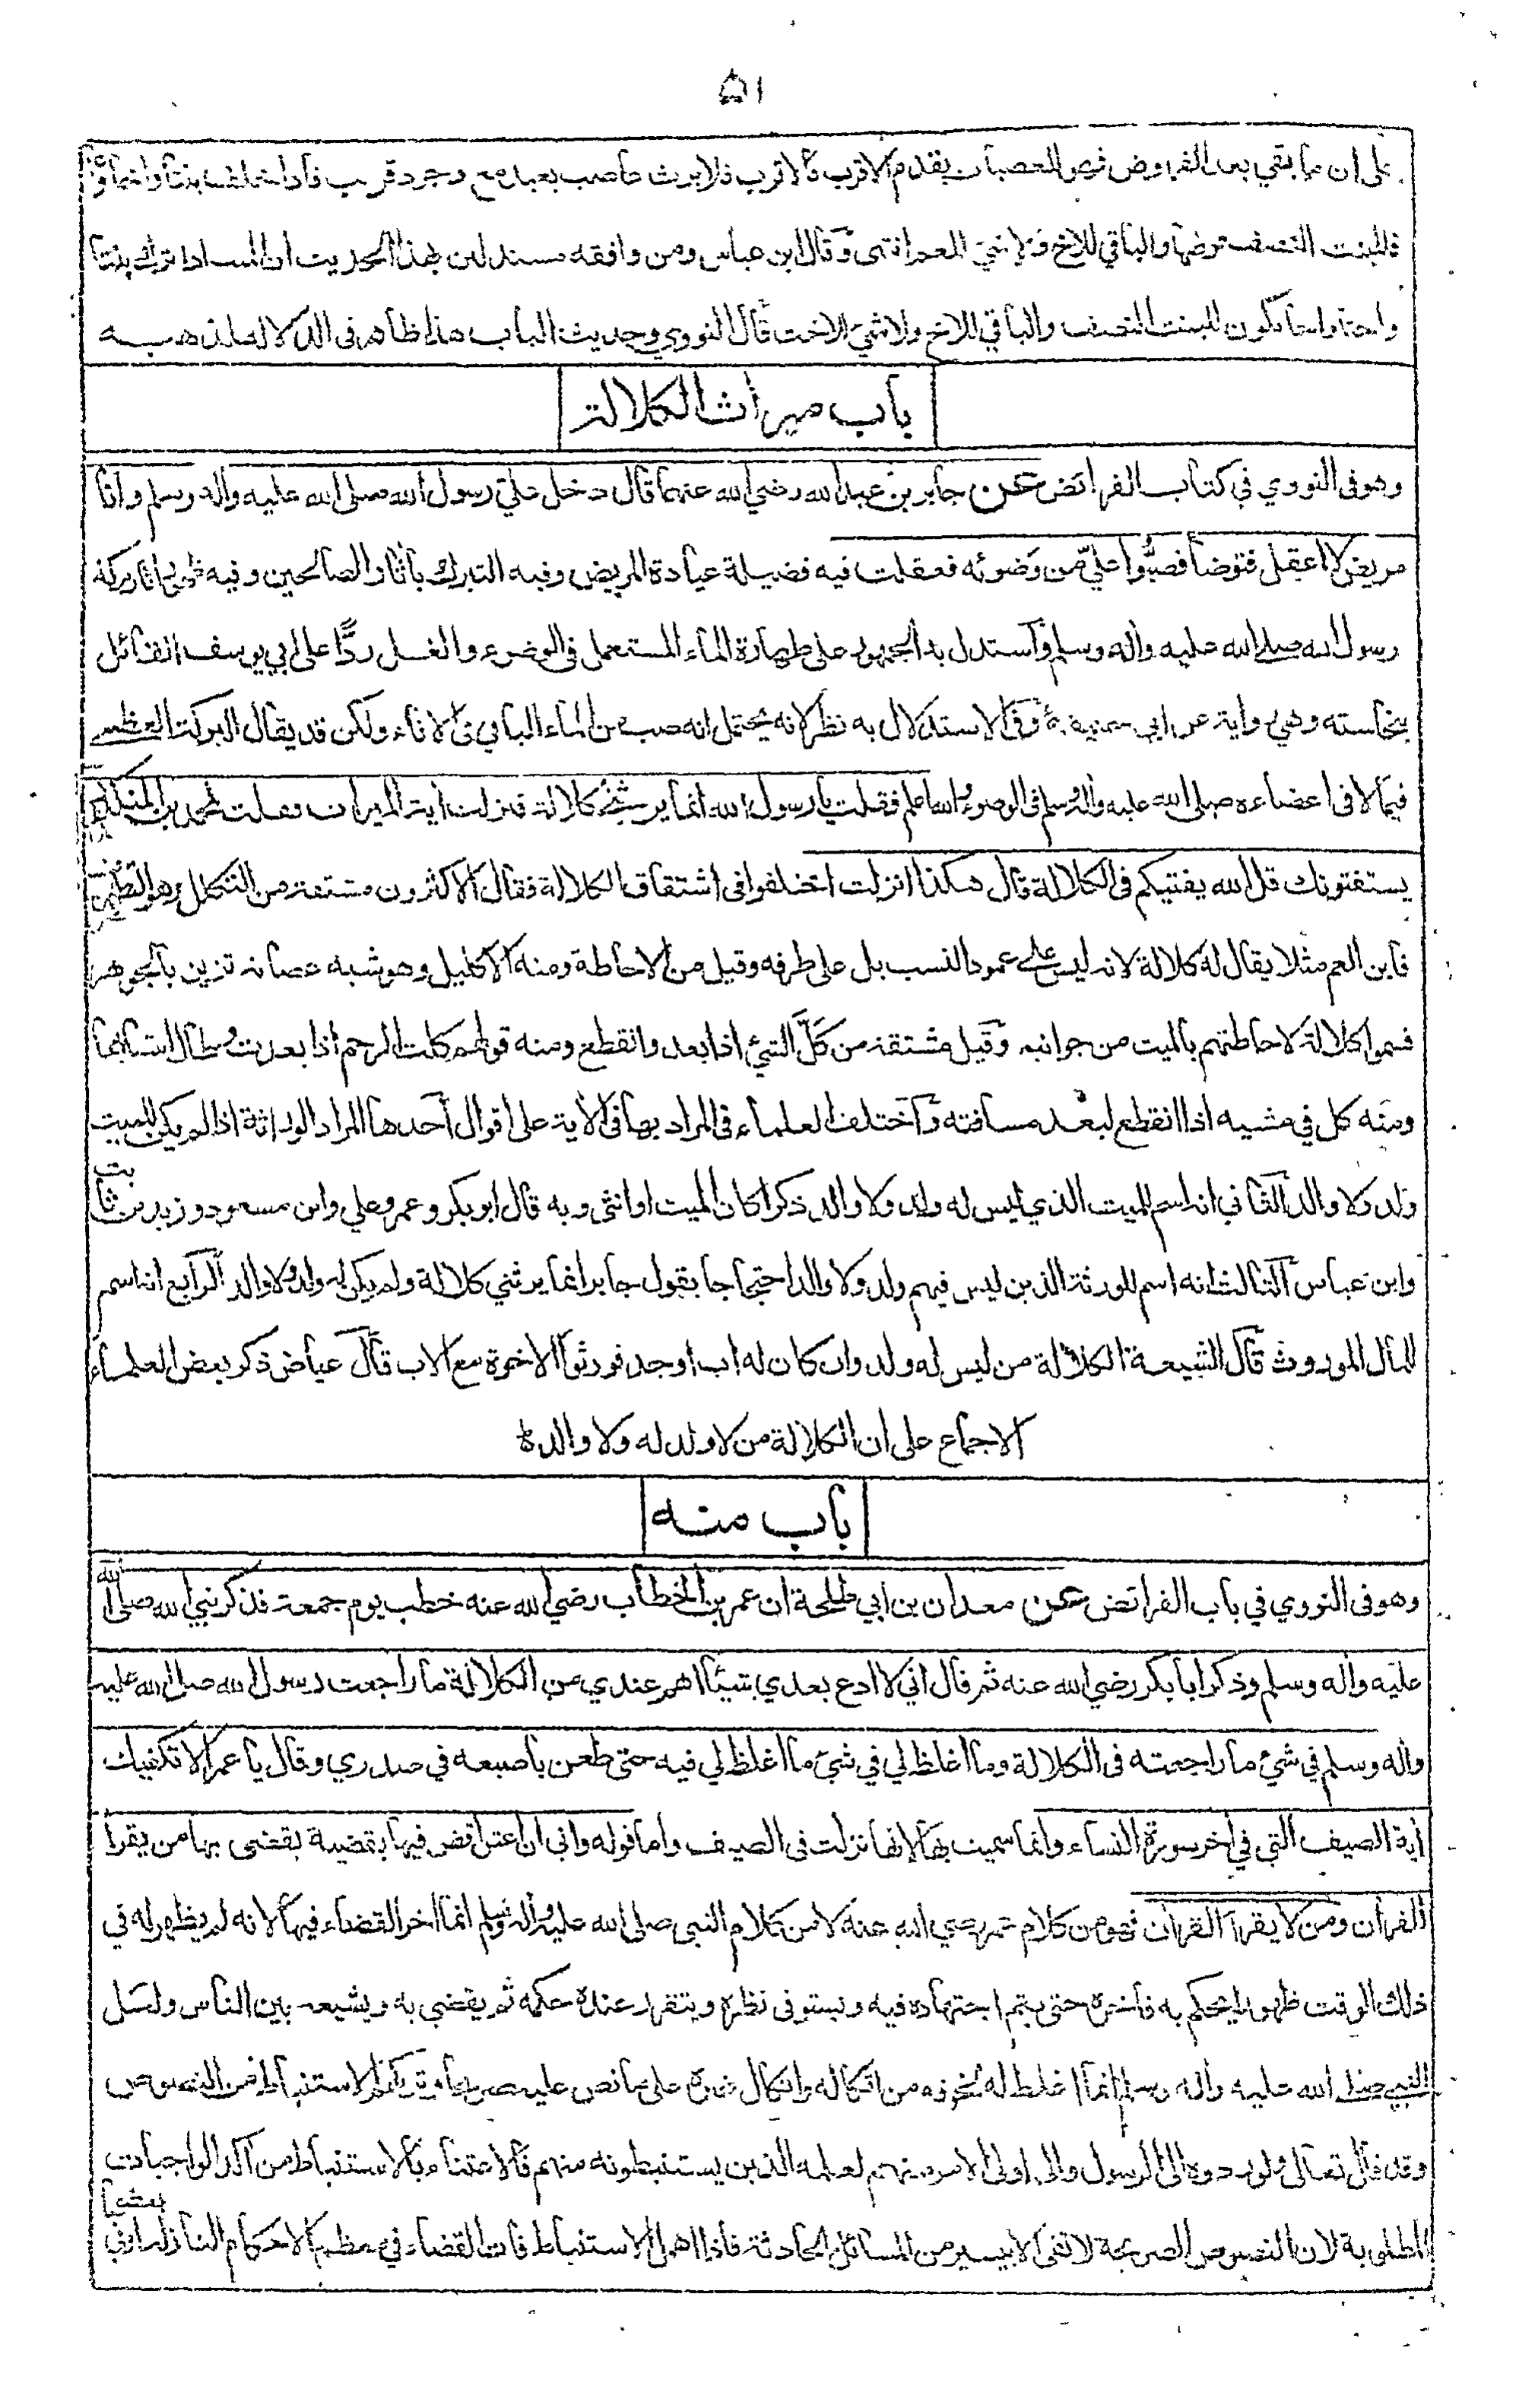 ٥١
على ان ما بقي بعد الفروض فهو للعصبات يقدم الاقرب فالاقرب فلا يرث عاصب بعيد مع وجود قريب فاذا خلف بنتا واخا وعما
فللبنت النصف فرضها والباقي للاخ ولا شيء للعم انتهى وقال ابن عباس ومن وافقه مستدلين بهذا الحديث ان الميت اذا ترك بنتا
واختا واخا يكون للبنت النصف والباقي للاخ ولا شيء للاخت قال النووي وحديث الباب هذا ظاهر في الدلالة لمذهبه
باب ميراث الكلالة
وهو في النووي في كتاب الفرائض عن جابر بن عبد الله رضي الله عنهما قال دخل علي رسول الله صلى الله عليه واله وسلم وانا
مريض لا اعقل فتوضأ فصبُّوا عليّ من وَضوئه فعقلت فيه فضيلة عيادة المريض وفيه التبرك بآثار الصالحين وفيه ظهور آثار بركة
رسول الله صلى الله عليه واله وسلم واستدل به الجمهور على طهارة الماء المستعمل في الوضوء والغسل ردًّا على ابي يوسف القائل
بنجاسته وهي رواية عن ابي حنيفة وفي الاستدلال به نظر لانه يحتمل انه صب من الماء الباقي في الاناء ولكن قد يقال البركة العظمى
فيما لاقى اعضاءه صلى الله عليه واله وسلم في الوضوء والله اعلم فقلت يا رسول الله انما يرثني كلالة فنزلت آية الميراث فقلت لمحمد بن المنكدر
يستفتونك قل الله يفتيكم في الكلالة قال هكذا انزلت اختلفوا في اشتقاق الكلالة فقال الاكثرون مشتقة من التكلل وهو التطرف
فابن العم مثلا يقال له كلالة لانه ليس على عمود النسب بل على طرفه وقيل من الاحاطة ومنه الاكليل وهو شبه عصابة تزين بالجوهر
فسموا كلالة لاحاطتهم بالميت من جوانبه وقيل مشتقة من كَلَّ الشيء اذا بعد وانقطع ومنه قولهم كلت الرحم اذا بعدت وطال انتسابها
ومنه كل في مشيه اذا انقطع لبُعْد مسافته واختلف العلماء في المراد بها في الآية على اقوال احدها المراد الوراثة اذا لم يكن للميت
ولد ولا والد الثاني انه اسم للميت الذي ليس له ولد ولا والد ذكرا كان الميت او انثى وبه قال ابو بكر وعمر وعلي وابن مسعود وزيد بن ثابت
وابن عباس الثالث انه اسم للورثة الذين ليس فيهم ولد ولا والد احتجاجا بقول جابر انما يرثني كلالة ولم يكن له ولد ولا والد الرابع انه اسم
للمال الموروث قال الشيعة الكلالة من ليس له ولد وان كان له اب او جد فورثوا الاخوة مع الاب قال عياض ذكر بعض العلماء
الاجماع على ان الكلالة من لا ولد له ولا والد
باب منه
وهو في النووي في باب الفرائض عن معدان بن ابي طلحة ان عمر بن الخطاب رضي الله عنه خطب يوم جمعة فذكر نبي الله صلى الله
عليه واله وسلم وذكر ابا بكر رضي الله عنه ثم قال اني لا ادع بعدي شيئا اهم عندي من الكلالة ما راجعت رسول الله صلى الله عليه
واله وسلم في شيء ما راجعته في الكلالة وما اغلظ لي في شيء ما اغلظ لي فيه حتى طعن باصبعه في صدري وقال يا عمر الا تكفيك
آية الصيف التي في آخر سورة النساء وانما سميت بها لانها نزلت في الصيف واما قوله واني ان اعش اقض فيها بقضية يقضى بها من يقرأ
القرآن ومن لا يقرأ القرآن فهو من كلام عمر رضي الله عنه لا من كلام النبي صلى الله عليه واله وسلم انما اخر القضاء فيها لانه لم يظهر له في
ذلك الوقت ظهورا يحكم به فاخره حتى يتم اجتهاده فيه ويستوفى نظره ويتقرر عنده حكمه ثم يقضي به ويشيعه بين الناس ولعل
النبي صلى الله عليه واله وسلم انما اغلظ له لخوفه من اتكاله واتكال غيره على ما نص عليه صريحا وتركهم الاستنباط من النصوص
وقد قال تعالى ولو ردوه الى الرسول والى اولى الامر منهم لعلمه الذين يستنبطونه منهم فالاعتناء بالاستنباط من آكد الواجبات
المطلوبة لان النصوص الصريحة لا تفي الا بيسير من المسائل الحادثة فاذا اهمل الاستنباط فات القضاء في معظم الاحكام النازلة او في بعضها